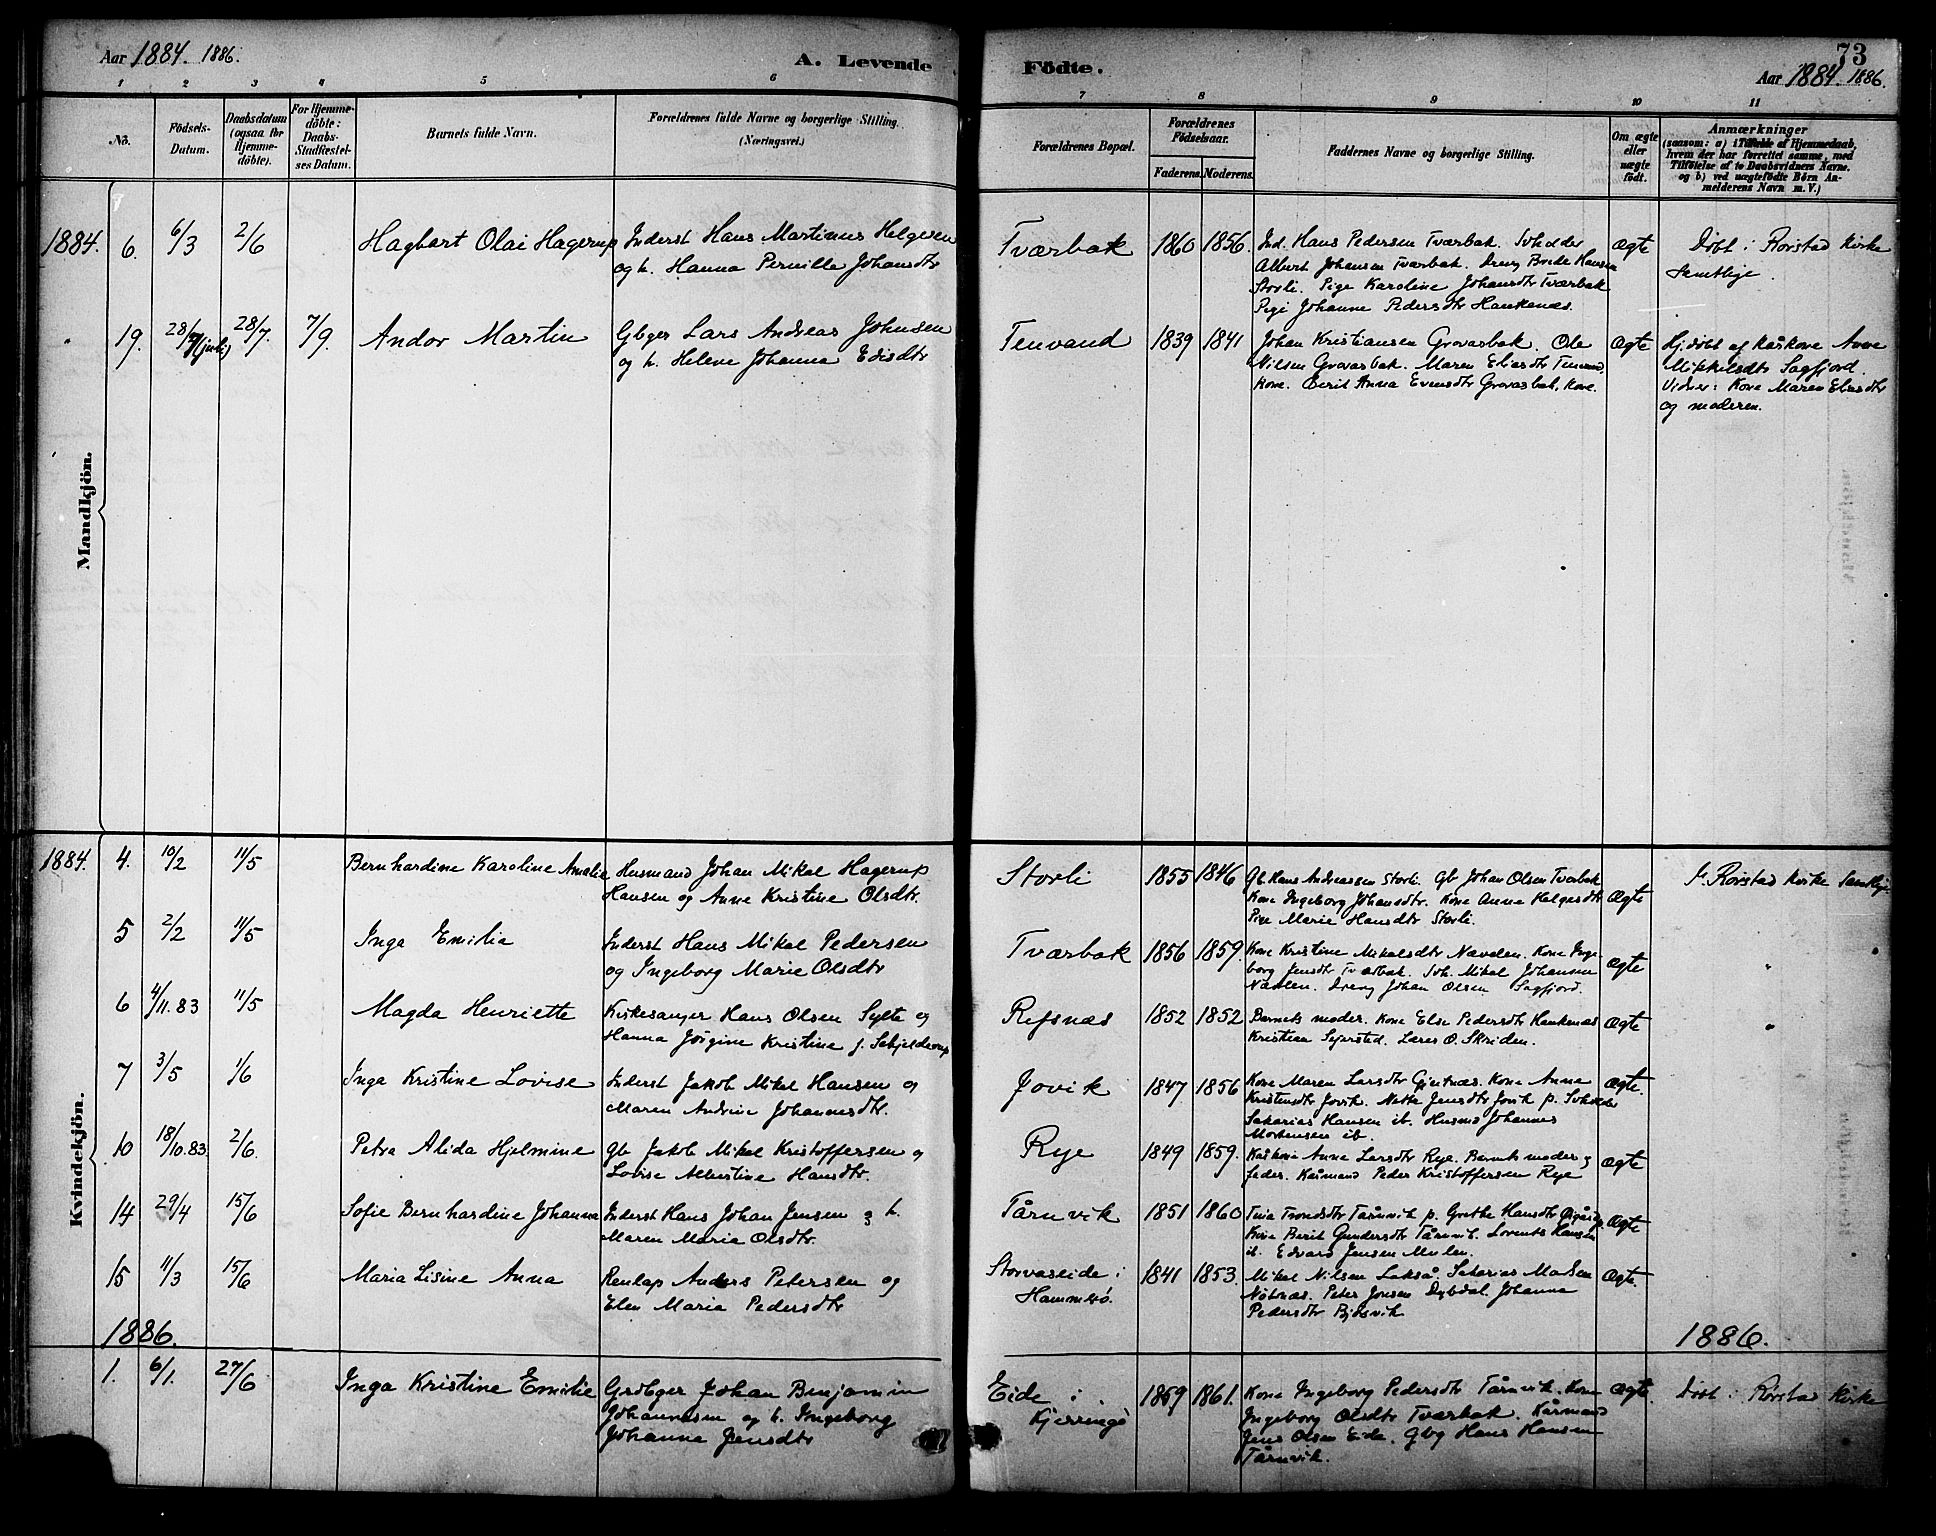 Aar 1884. 1886.
A. Levende
Födte.
73
Aar 1884. 1886.
1 2 3 4 5 6 7 8 9 10 11
No.
Födsels-
Datum.
Daabsdatum
(ogsaa for
Hjemme-
döbte).
For Hjemme-
döbte:
Daabs-
Stadfæstel-
ses Datum.
Barnets fulde Navn.
Forældrenes fulde Navne og borgerlige Stilling.
(Næringsvei.)
Forældrenes Bopæl.
Forældrenes
Födselsaar.
Faderens. Moderens.
Faddernes Navne og borgerlige Stilling.
Om ægte
eller
uægte
födt.
Anmærkninger
(saasom: a) i Tilfælde af Hjemmedaab,
hvem der har forrettet samme, med
Tilföielse af to Daabsvidners Navne,
og b) ved uægtefödte Börn An-
melderens Navn m. V.)
Mandkjön.
1884. 6. 6/3 2/6 Hagbart Olai Hagerup
Inderst Hans Martinus Helgesen
og h. Hanna Pernille Johansdtr
Tværbak 1860 1856.
Ind. Hans Pedersen Tværbak.
Albert Johansen Tværbak. Dreng Brede Hansen
Storli. Pige Karoline Johansdtr Tværbak
Pige Johanne Pedersdtr Hankenæs.
Ægte
Döbt i Rørstad Kirke
Samtlige.
19. 28/7 (juli) 28/7. 7/9. Andor Martin
Gbger Lars Andreas Johnsen
og h. Helene Johanna Edisdtr
Tenvand 1839 1841
Johan Kristiansen Grovasbak. Ole
Nilsen Grovasbak. Maren Eliasdtr Tenvand,
kone. Berit Anna Evensdtr Grovasbak, kone.
Ægte
Hjdöbt af Kåskone Anne
Mikkelsdtr Sagfjord.
Vidner: Kone Maren Eliasdtr
og moderen.
Kvindekjön.
1884. 4. 10/2 11/5 Bernhardine Karoline Amalie
Husmand Johan Mikal Hagerup
Hansen og Anne Kristine Olsdtr.
Storli 1855 1846
Gb Hans Andreassen Storli. Gb Johan Olsen Tværbak
Kone Ingeborg Johansdtr. Kone Anne Helgesdtr
Pige Marie Hansdtr Storli.
Ægte
I Rørstad Kirke Samtlige
5 2/2 11/5 Inga Emilia
Inderst Hans Mikal Pedersen
og Ingeborg Marie Olsdtr
Tværbak 1856 1859.
Kone Kristine Mikalsdtr Nævelen. Kone Inge-
borg Jensdtr Tværbak. Mikal Johansen
Nævlen. Dreng Johan Olsen Sagfjord.
Ægte
"
6 4/11.83 11/5 Magda Henriette
Kirkesanger Hans Olsen Sylte og
Hanna Jörgine Kristine f. Schjelderup
Refsnæs 1852 1852
Barnets moder. Kone Else Pedersdtr Hankenæs
Kristian Sejersted. Lærer O. Skriden.
Ægte
"
7 3/5 1/6 Inga Kristine Lovise
Inderst Jakob Mikal Hansen og
Maren Andrine Johannesdtr.
Jovik 1847 1856
Kone Maren Larsdtr Gjeitnæs. Kone Anne
Kristensdtr Jovik. Nette Jensdtr Jovik p.
Sakarias Hansen ib. Husmd Johannes
Mortensen ib.
Ægte.
10 18/10.83. 2/6. Petra Alida Hjelmine
Gb Jakob Mikal Kristoffersen og
Lovise Albertine Hansdtr.
Rye 1849 1859.
Kåskone Anne Larsdtr Rye. Barnets moder og
fader. Kårmand Peder Kristoffersen Rye
Ægte
14 29/4 15/6 Sofie Bernhardine Johanna
Inderst Hans Johan Jensen og h.
Maren Marie Olsdtr.
Tårnvik 1851 1860
Tina Trondsdtr Tårnvik p. Grethe Hansdtr
Kone Berit Gundersdtr Tårnvik. Lorents Hansen
ib. Edvard Jensen Mulen.
Ægte
15 11/3 15/6 Maria Lisine Anna
Renlap Anders Petersen og
Elen Maria Pedersdtr
Storvaseide i
Hammerö.
1841 1853.
Mikal Nilsen Lakså. Sakarias Madsen
Nötnæs. Peter Jonsen Dybdal. Johanna
Pedersdtr
Ægte.
1886.
1886.
1. 6/1. 27/6 Inga Kristine Emilie
Grdbger Johan Benjamin
Johannesen og h. Ingeborg
Johanna Jensdtr
Eide i
Kjerringö
1859 1861.
Kone Ingeborg Pedersdtr Tårnvik. Kone
Ingeborg Olsdtr Tværbak. Kårmand
Jens Olsen Eide. Gbg Hans Hansen
Tårnvik.
Ægte.
Döbt i Rørstad Kirke